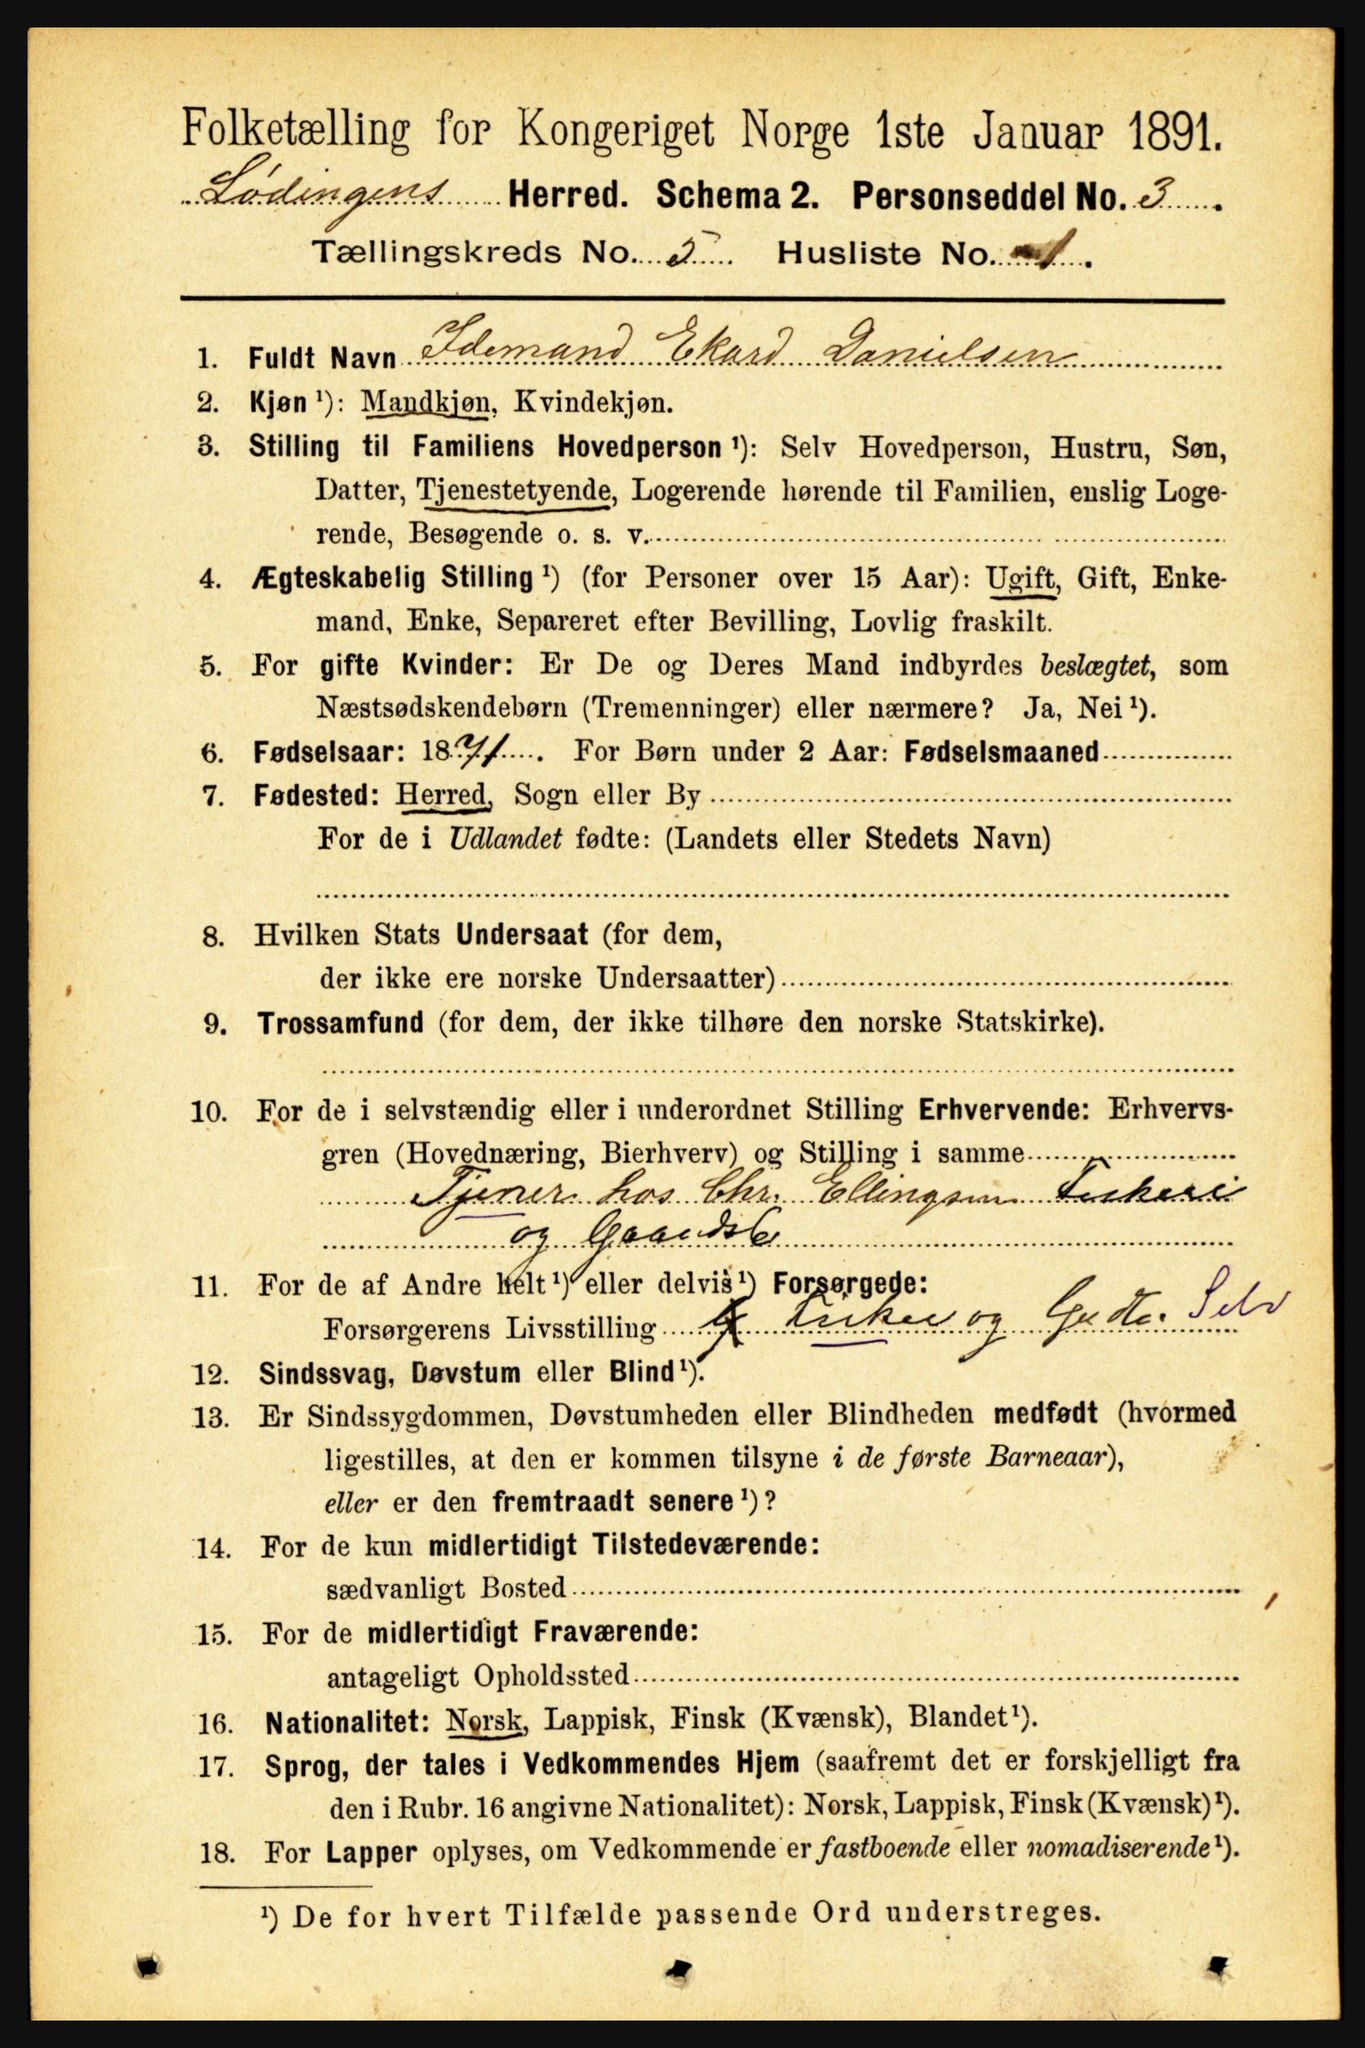 Folketælling for Kongeriget Norge 1ste Januar 1891.
Lødingens Herred. Schema 2. Personseddel No. 3.
Tællingskreds No. 5. Husliste No. 1.
1. Fuldt Navn Idemand Ekard Danielsen
2. Kjøn ¹): Mandkjøn, Kvindekjøn.
3. Stilling til Familiens Hovedperson ¹): Selv Hovedperson, Hustru, Søn,
Datter, Tjenestetyende, Logerende hørende til Familien, enslig Loge-
rende, Besøgende o. s. v.
4. Ægteskabelig Stilling ¹) (for Personer over 15 Aar): Ugift, Gift, Enke-
mand, Enke, Separeret efter Bevilling, Lovlig fraskilt.
5. For gifte Kvinder: Er De og Deres Mand indbyrdes beslægtet, som
Næstsødskendebørn (Tremenninger) eller nærmere? Ja, Nei ¹).
6. Fødselsaar: 1871. For Børn under 2 Aar: Fødselsmaaned
7. Fødested: Herred, Sogn eller By
For de i Udlandet fødte: (Landets eller Stedets Navn)
8. Hvilken Stats Undersaat (for dem,
der ikke ere norske Undersaatter)
9. Trossamfund (for dem, der ikke tilhøre den norske Statskirke).
10. For de i selvstændig eller i underordnet Stilling Erhvervende: Erhvervs-
gren (Hovednæring, Bierhverv) og Stilling i samme
Tjener hos Chr. Ellingsen Fiskeri
og Gaardsb
11. For de af Andre helt ¹) eller delvis ¹) Forsørgede:
Forsørgerens Livsstilling Fisker og Selv
12. Sindssvag, Døvstum eller Blind ¹).
13. Er Sindssygdommen, Døvstumheden eller Blindheden medfødt (hvormed
ligestilles, at den er kommen tilsyne i de første Barneaar),
eller er den fremtraadt senere ¹)?
14. For de kun midlertidigt Tilstedeværende:
sædvanligt Bosted
15. For de midlertidigt Fraværende:
antageligt Opholdssted
16. Nationalitet: Norsk, Lappisk, Finsk (Kvænsk), Blandet ¹).
17. Sprog, der tales i Vedkommendes Hjem (saafremt det er forskjelligt fra
den i Rubr. 16 angivne Nationalitet): Norsk, Lappisk, Finsk (Kvænsk) ¹).
18. For Lapper oplyses, om Vedkommende er fastboende eller nomadiserende ¹).
¹) De for hvert Tilfælde passende Ord understreges.